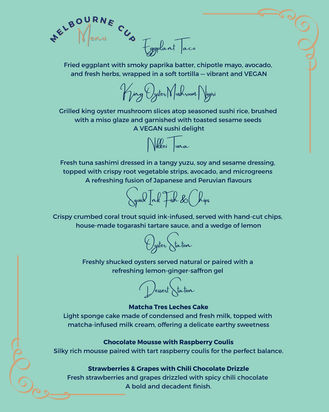 MELBOURNE CUP
Menu
Eggplant Taco
Fried eggplant with smoky paprika batter, chipotle mayo, avocado,
and fresh herbs, wrapped in a soft tortilla — vibrant and VEGAN
King Oyster Mushroom Nigiri
Grilled king oyster mushroom slices atop seasoned sushi rice, brushed
with a miso glaze and garnished with toasted sesame seeds
A VEGAN sushi delight
Nikkei Tuna
Fresh tuna sashimi dressed in a tangy yuzu, soy and sesame dressing,
topped with crispy root vegetable strips, avocado, and microgreens
A refreshing fusion of Japanese and Peruvian flavours
Squid Ink Fish & Chips
Crispy crumbed coral trout squid ink-infused, served with hand-cut chips,
house-made togarashi tartare sauce, and a wedge of lemon
Oyster Station
Freshly shucked oysters served natural or paired with a
refreshing lemon-ginger-saffron gel
Dessert Station
Matcha Tres Leches Cake
Light sponge cake made of condensed and fresh milk, topped with
matcha-infused milk cream, offering a delicate earthy sweetness
Chocolate Mousse with Raspberry Coulis
Silky rich mousse paired with tart raspberry coulis for the perfect balance.
Strawberries & Grapes with Chili Chocolate Drizzle
Fresh strawberries and grapes drizzled with spicy chili chocolate
A bold and decadent finish.